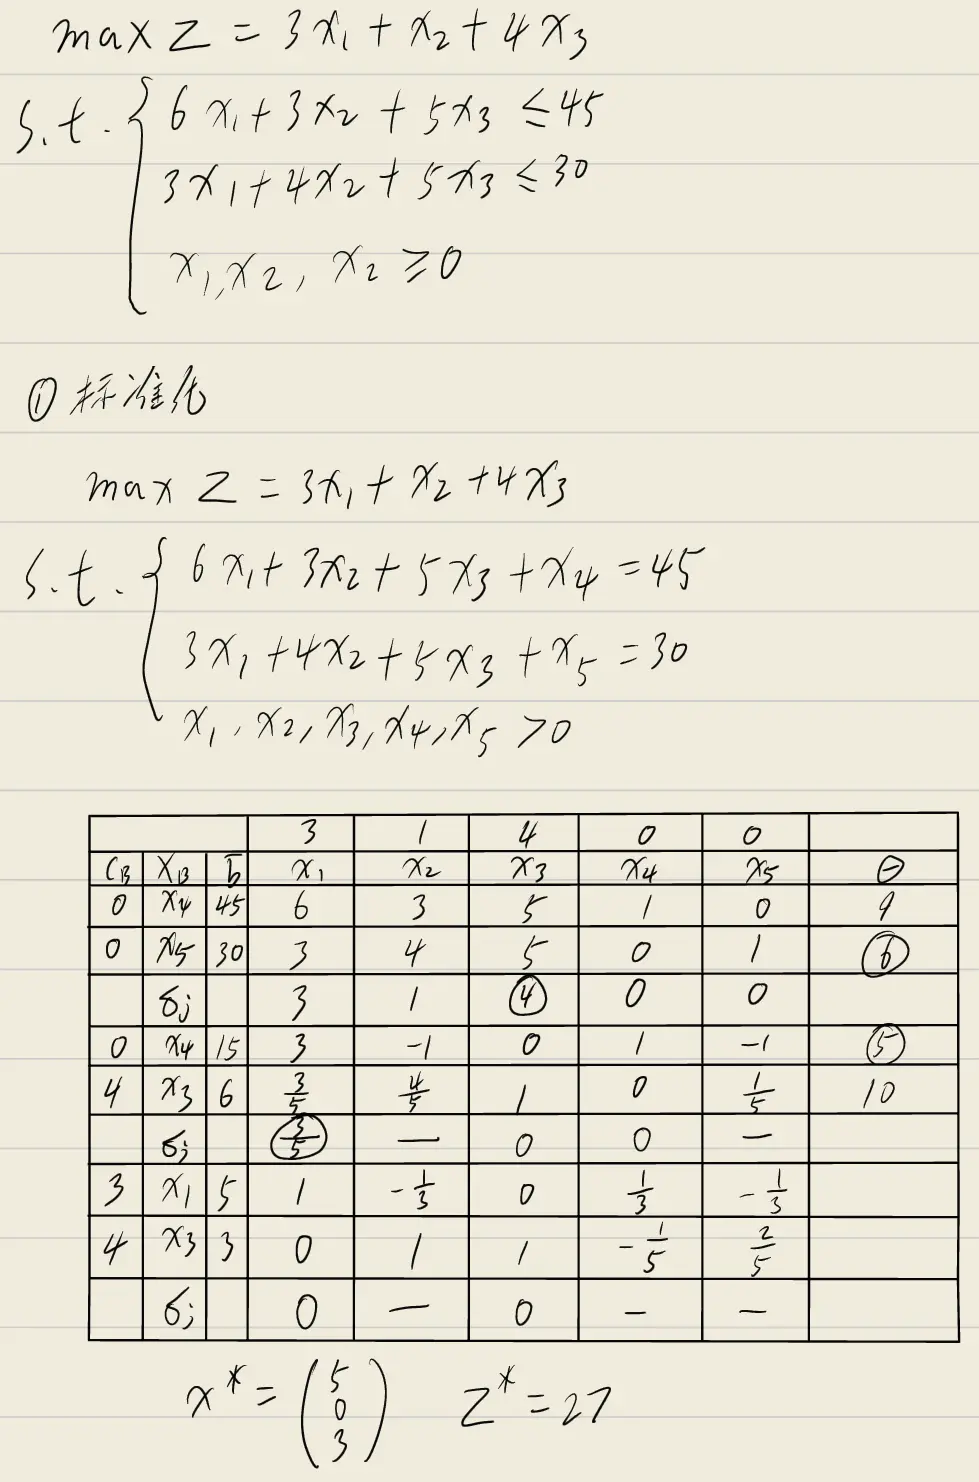 max Z = 3x₁ + x₂ + 4x₃
s.t. { 6x₁ + 3x₂ + 5x₃ ≤ 45
3x₁ + 4x₂ + 5x₃ ≤ 30
x₁, x₂, x₂ ≥ 0
① 标准化
max Z = 3x₁ + x₂ + 4x₃
s.t. { 6x₁ + 3x₂ + 5x₃ + x₄ = 45
3x₁ + 4x₂ + 5x₃ + x₅ = 30
x₁, x₂, x₃, x₄, x₅ > 0
3 1 4 0 0
C_B X_B b̄ x₁ x₂ x₃ x₄ x₅ θ
0 x₄ 45 6 3 5 1 0 9
0 x₅ 30 3 4 5 0 1 6
σⱼ 3 1 4 0 0
0 x₄ 15 3 -1 0 1 -1 5
4 x₃ 6 3/5 4/5 1 0 1/5 10
σⱼ 3/5 — 0 0 —
3 x₁ 5 1 -1/3 0 1/3 -1/3
4 x₃ 3 0 1 1 -1/5 2/5
σⱼ 0 — 0 — —
x* = (5 0 3) Z* = 27